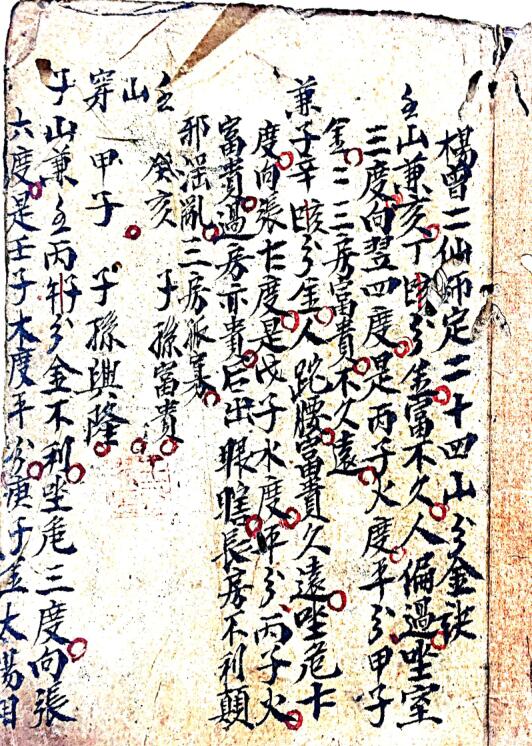 楊曾二仙師定二十四山分金訣
壬山兼亥丁亥分金富不久人偏過坐室
三度向翌四度是丙子火度平分甲子
金二三房富貴不久遠
兼子辛亥分金人跎腰富貴久遠坐危十
度向張七度是戊子水度平分丙子火
富貴過房亦貴后出眼瞎長房不利顛
邪淫亂三房孤寡
壬 癸亥 子孫富貴
山
穿 甲子 子孫興隆
子山兼壬丙子分金不利坐危三度向張
六度是壬子木度平分庚子土太陽日